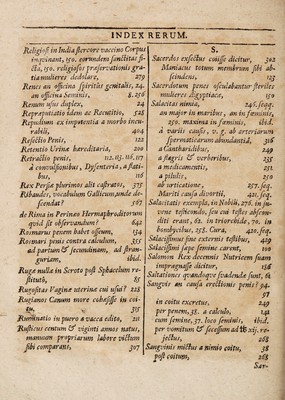 INDEX RERUM.
Religiosi in India stercore vaccino Corpus
inquinant, 150. eorundem sanctitas fi-
cta, 150. religiosos præservationis gra-
tia mulieres dedolare, 279
Renes an officina spiritus genitalis, 24.
an officina Seminis, 8. 256
Renum usus duplex, 24
Repræputatio idem ac Recutitio, 525
Repudium ex impotentia a morbo incu-
rabili, 404
Resectio Penis, 122
Retentio Urinæ hæreditaria, 200
Retractio penis, 112. 113. 116. 117
à convulsionibus, Dysenteria, a flati-
bus, 116
Rex Persiæ plurimos alit castratos, 575
Ribaudes, vocabulum Gallicum, unde de-
scendat? 567
de Rima in Perinæo Hermaphroditorum
quid sit observandum? 642
Romarus penem habet osseum, 134
Rosmari penis contra calculum, 355
ad partum & secundinam, ad stran-
guriam, ibid.
Rugæ nullæ in Scroto post Sphacelum re-
stituto, 85
Rugositas Vaginæ uterinæ cui usui? 128
Rugianos Canum more cohæsisse in coi-
tu, 515
Ruminatio in puero a vacca edito, 211
Rusticus centum & viginti annos natus,
manuum propriarum labore victum
sibi comparans, 307
S.
Sacerdos exsectus coiisse dicitur, 302
Maniacus totum membrum sibi ab-
scindens, 123
Sacerdotum penes osculabantur steriles
mulieres Ægyptiacæ, 150
Salacitas nimia, 246. seqq.
an major in maribus, an in fœminis,
250. maxima in feminis, ibid.
à variis causis, v. g. ab arteriarum
spermaticarum abundantia, 316
à Cantharibus, 249
a flagris & verberibus, 235
a medicamentis, 232
a pilulis, 250
ab urticatione, 257. seq.
Mariti causa divortii, 422. seq.
Salacitatis exempla, in Nobili, 276. in ju-
vene testicondo, seu cui testes abscon-
diti erant, 62. in triorchide, 70. in
bombycibus, 258. Cura, 420. seq.
Salacissimus sine externis testibus, 429
Salacissimi sæpe semine carent, 100
Salomon Rex decennis Nutricem suam
imprægnasse dicitur, 156
Saltationes quandoque suadendæ sunt, 61
Sanguis an causa erectionis penis? 94.
97
in coitu excretus, 249
per penem, 35. a calculo, 141
cum semine, 37. loco seminis, ibid.
per vomitum & secessum ad ℔ xij. re-
jectus, 268
Sanguinis mictus a nimio coitu, 38
post coitum, 268
San-